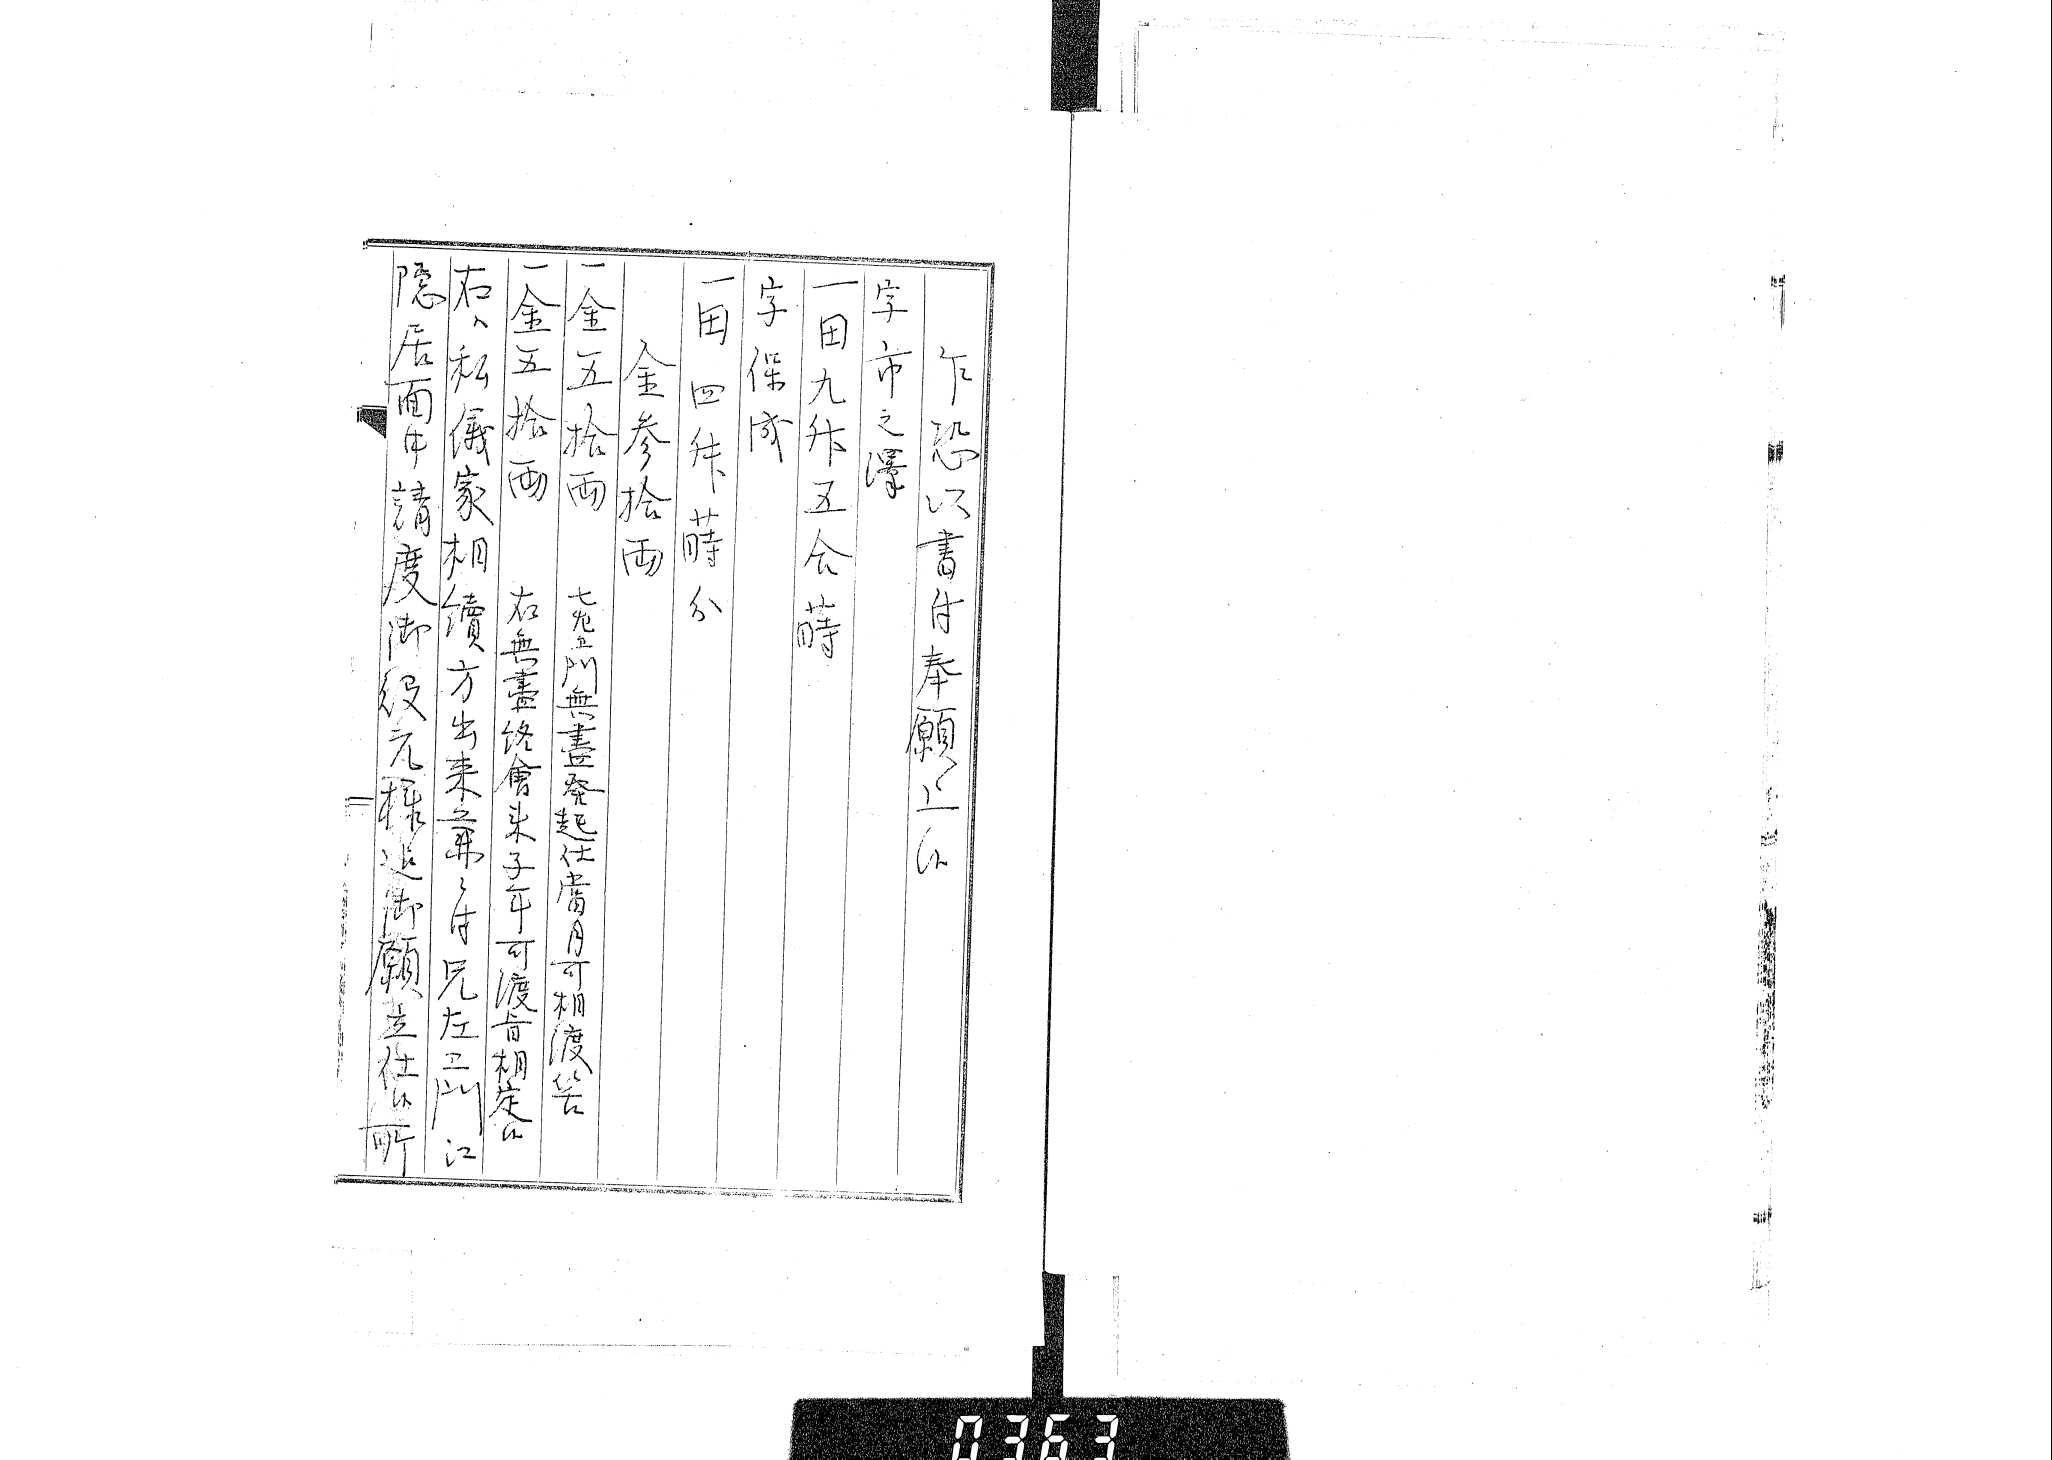 乍恐以書付奉願上候
字市之澤
一田九舛五合蒔
字保成
一田四舛蒔分
金参拾両
一金五拾両 七左衛門無盡発起仕當月可相渡筈
一金五拾両 右無盡終會来子年可渡旨相定候
右ハ私儀家相續方出来立兼候ニ付兄左衛門江
隠居面申請度御役元様迄御願立仕候所
0363